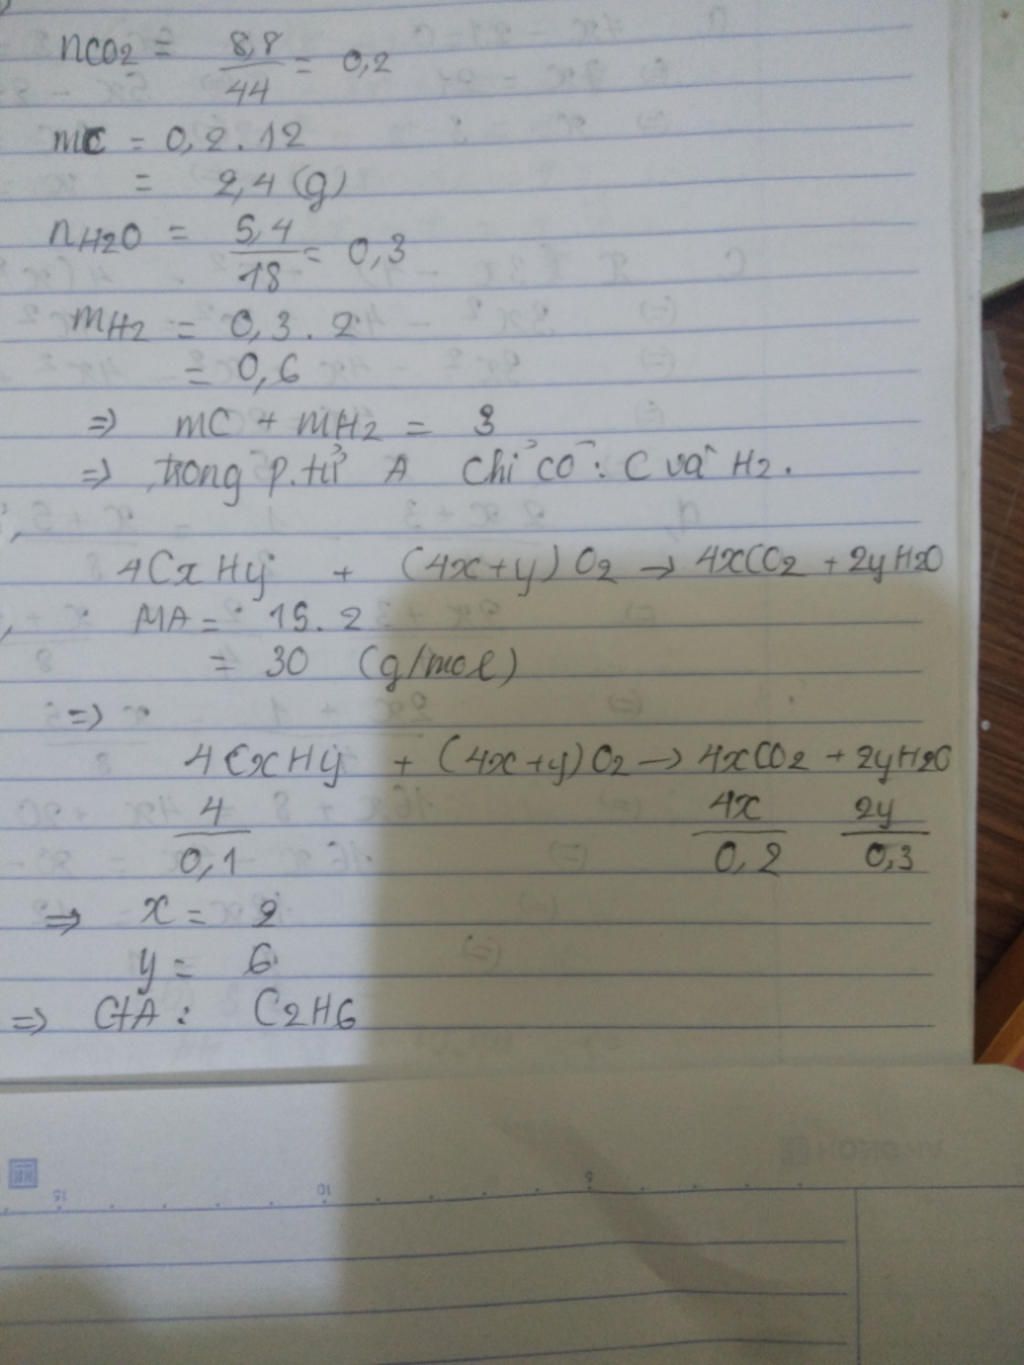 nCO2 = 8,8/44 = 0,2
mC = 0,2.12
= 2,4 (g)
nH2O = 5,4/18 = 0,3
mH2 = 0,3.2
= 0,6
=> mC + mH2 = 3
=> trong p.tử A chỉ có: C và H2.
4CxHy + (4x+y)O2 → 4xCO2 + 2yH2O
MA = 15.2
= 30 (g/mol)
=>
4CxHy + (4x+y)O2 → 4xCO2 + 2yH2O
4/0,1 4x/0,2 2y/0,3
=> x = 2
y = 6
=> CTA: C2H6
15 10 5